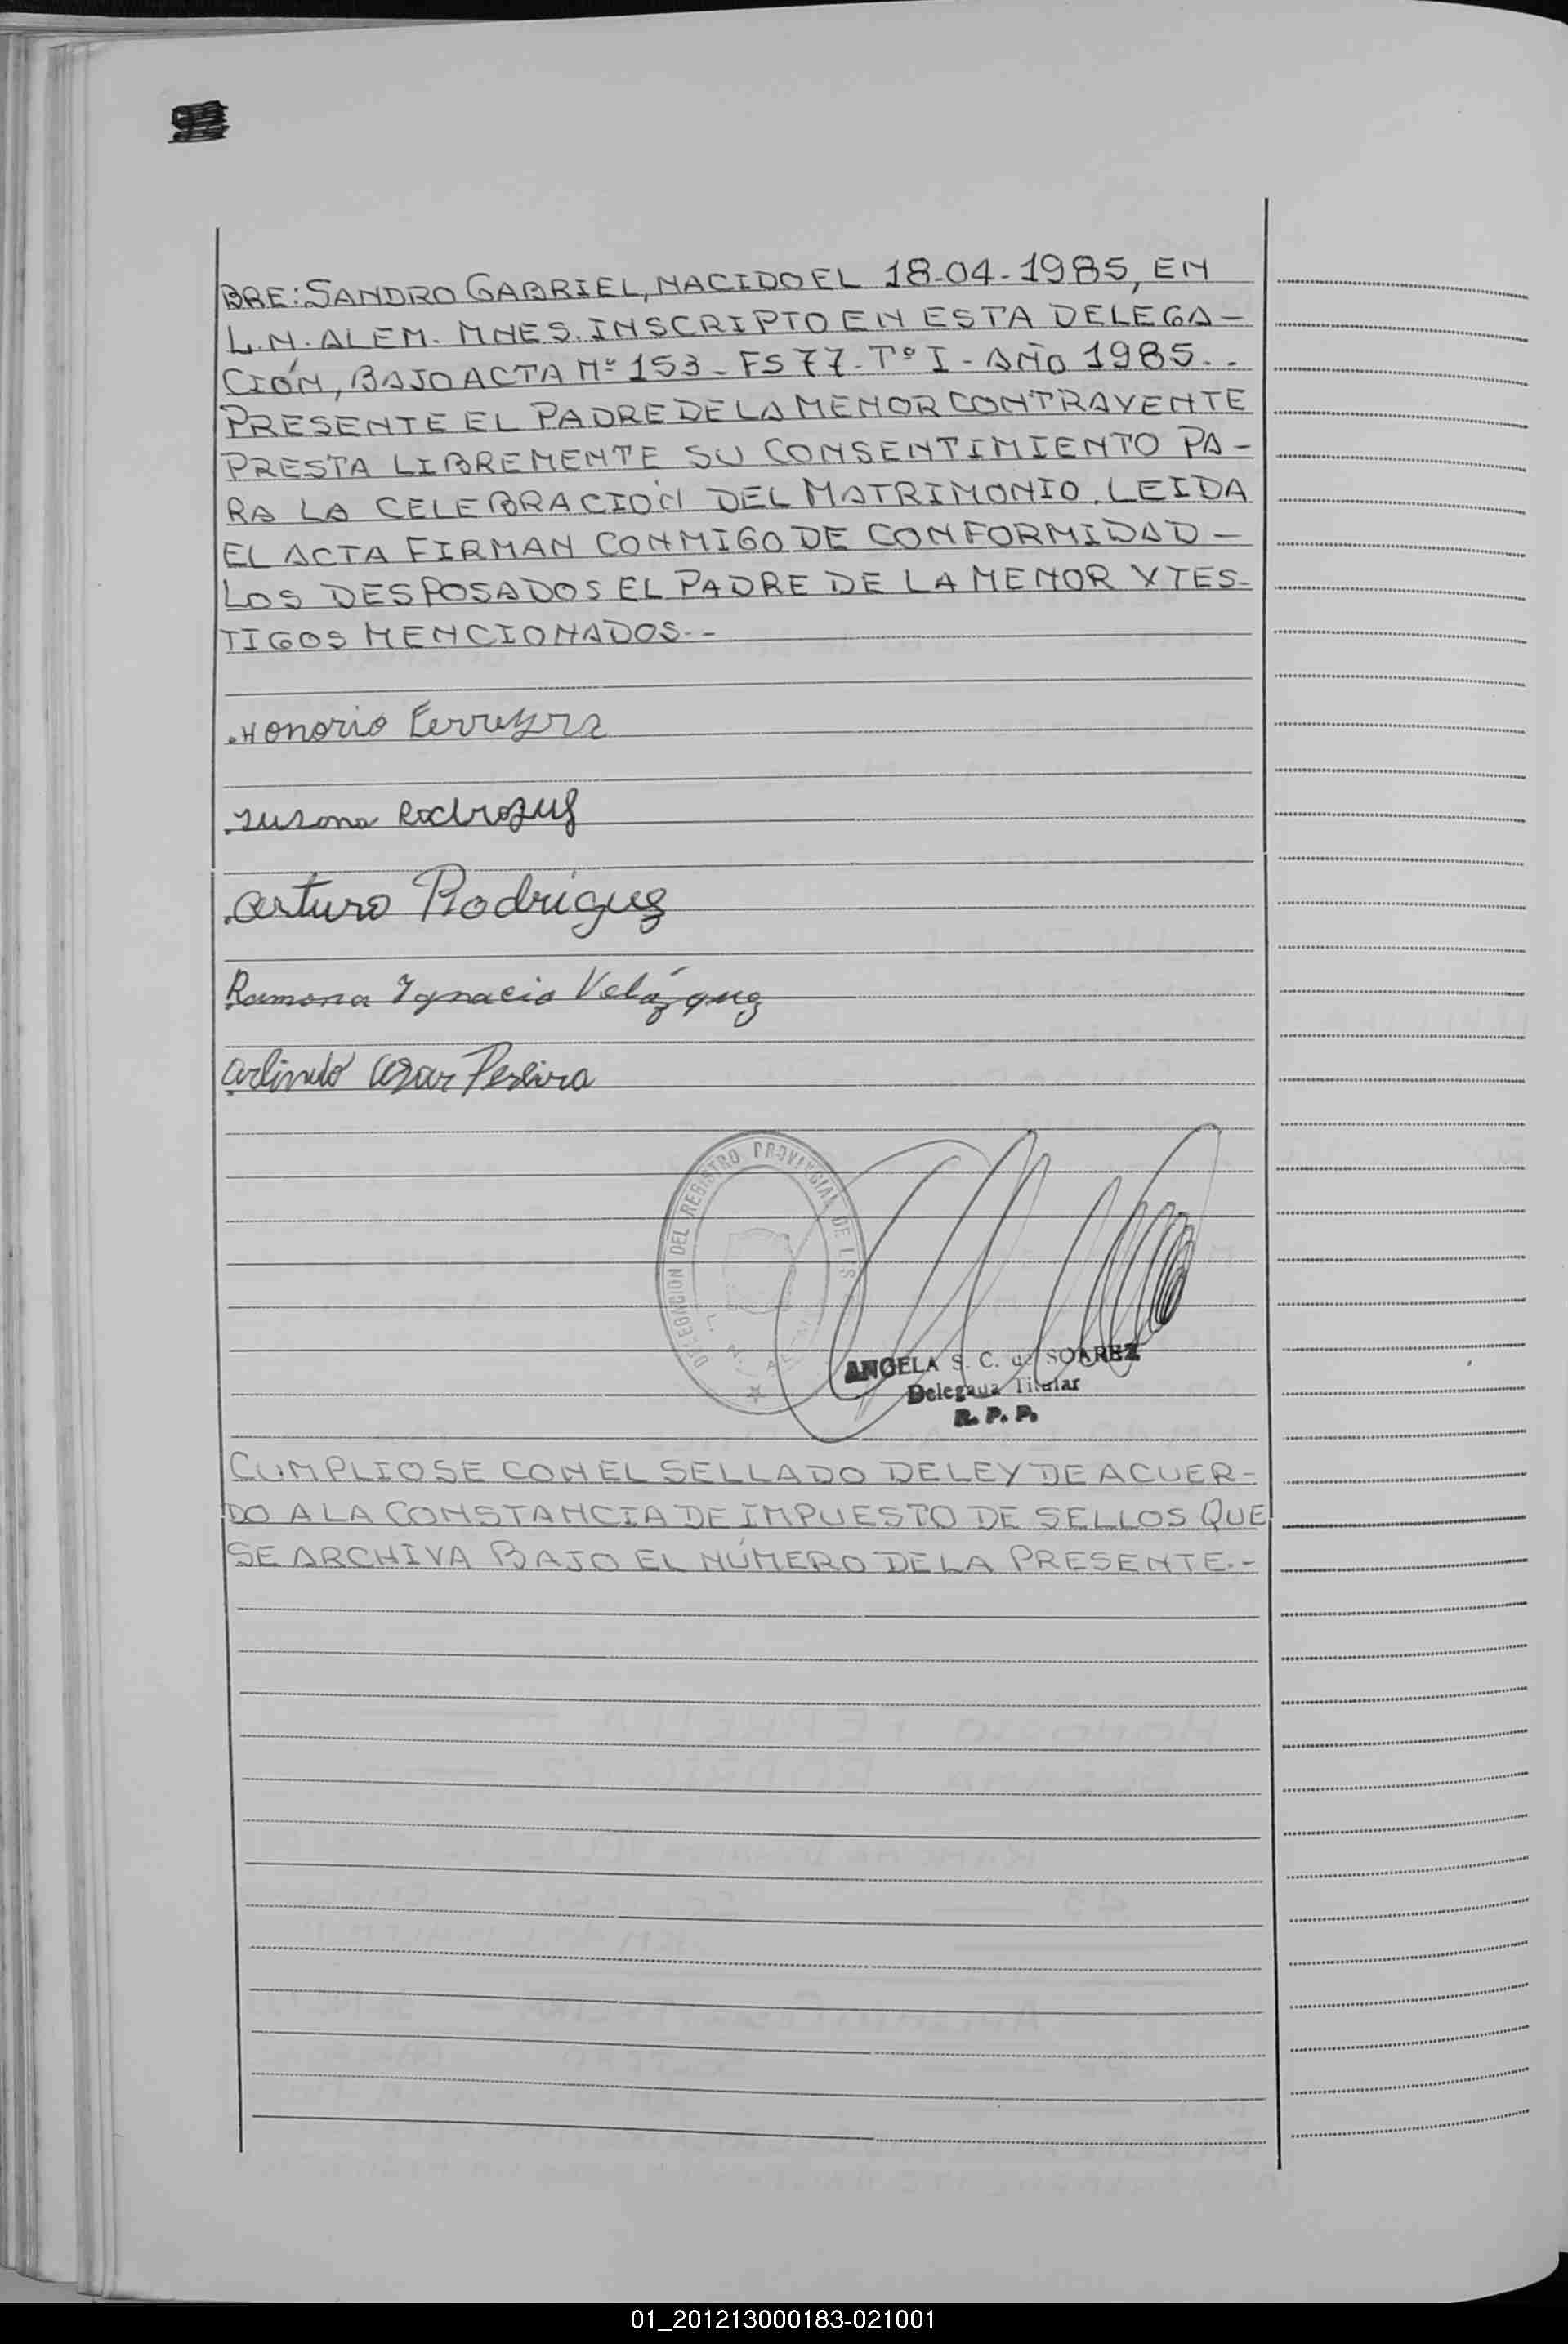 BRE: SANDRO GABRIEL, NACIDO EL 18-04-1985, EN
L.N. ALEM. MNES. INSCRIPTO EN ESTA DELEGA-
CIÓN, BAJO ACTA Nº 153 - FS 77 - Tº I - AÑO 1985.-
PRESENTE EL PADRE DE LA MENOR CONTRAYENTE
PRESTA LIBREMENTE SU CONSENTIMIENTO PA-
RA LA CELEBRACIÓN DEL MATRIMONIO. LEIDA
EL ACTA FIRMAN CONMIGO DE CONFORMIDAD -
LOS DESPOSADOS EL PADRE DE LA MENOR Y TES-
TIGOS MENCIONADOS.-
Honorio Ferreyra
Susana
Arturo Rodríguez
Ramona Ignacia Velázquez
Arlindo Cezar Pereira
DELEGACION DEL REGISTRO PROVINCIAL DE LAS
ANGELA S. C. de SOAREZ
Delegada Titular
R. P. P.
CUMPLIOSE CON EL SELLADO DE LEY DE ACUER-
DO A LA CONSTANCIA DE IMPUESTO DE SELLOS QUE
SE ARCHIVA BAJO EL NÚMERO DE LA PRESENTE.-
01_201213000183-021001